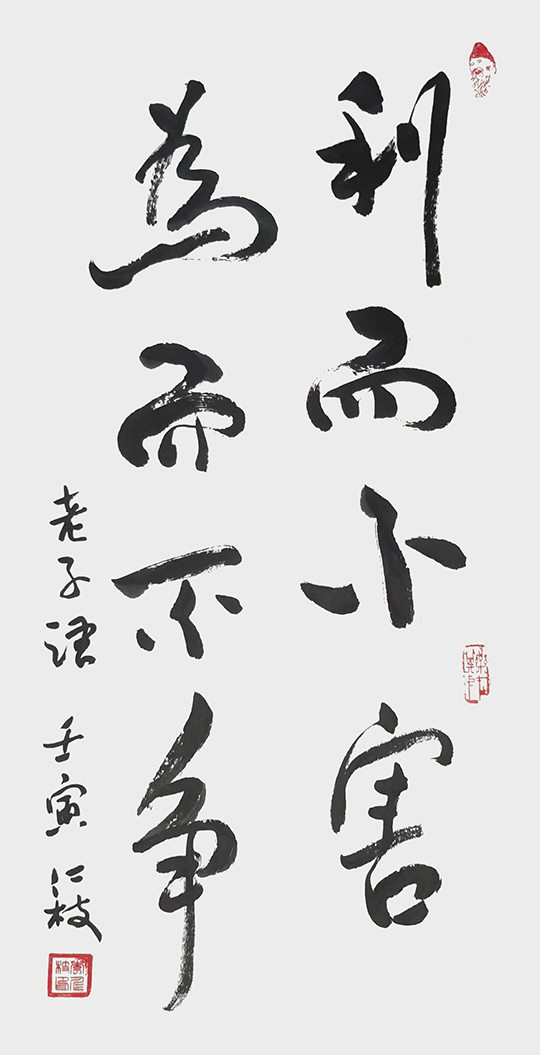 利而不害
為而不争
老子語 壬寅 仁枝